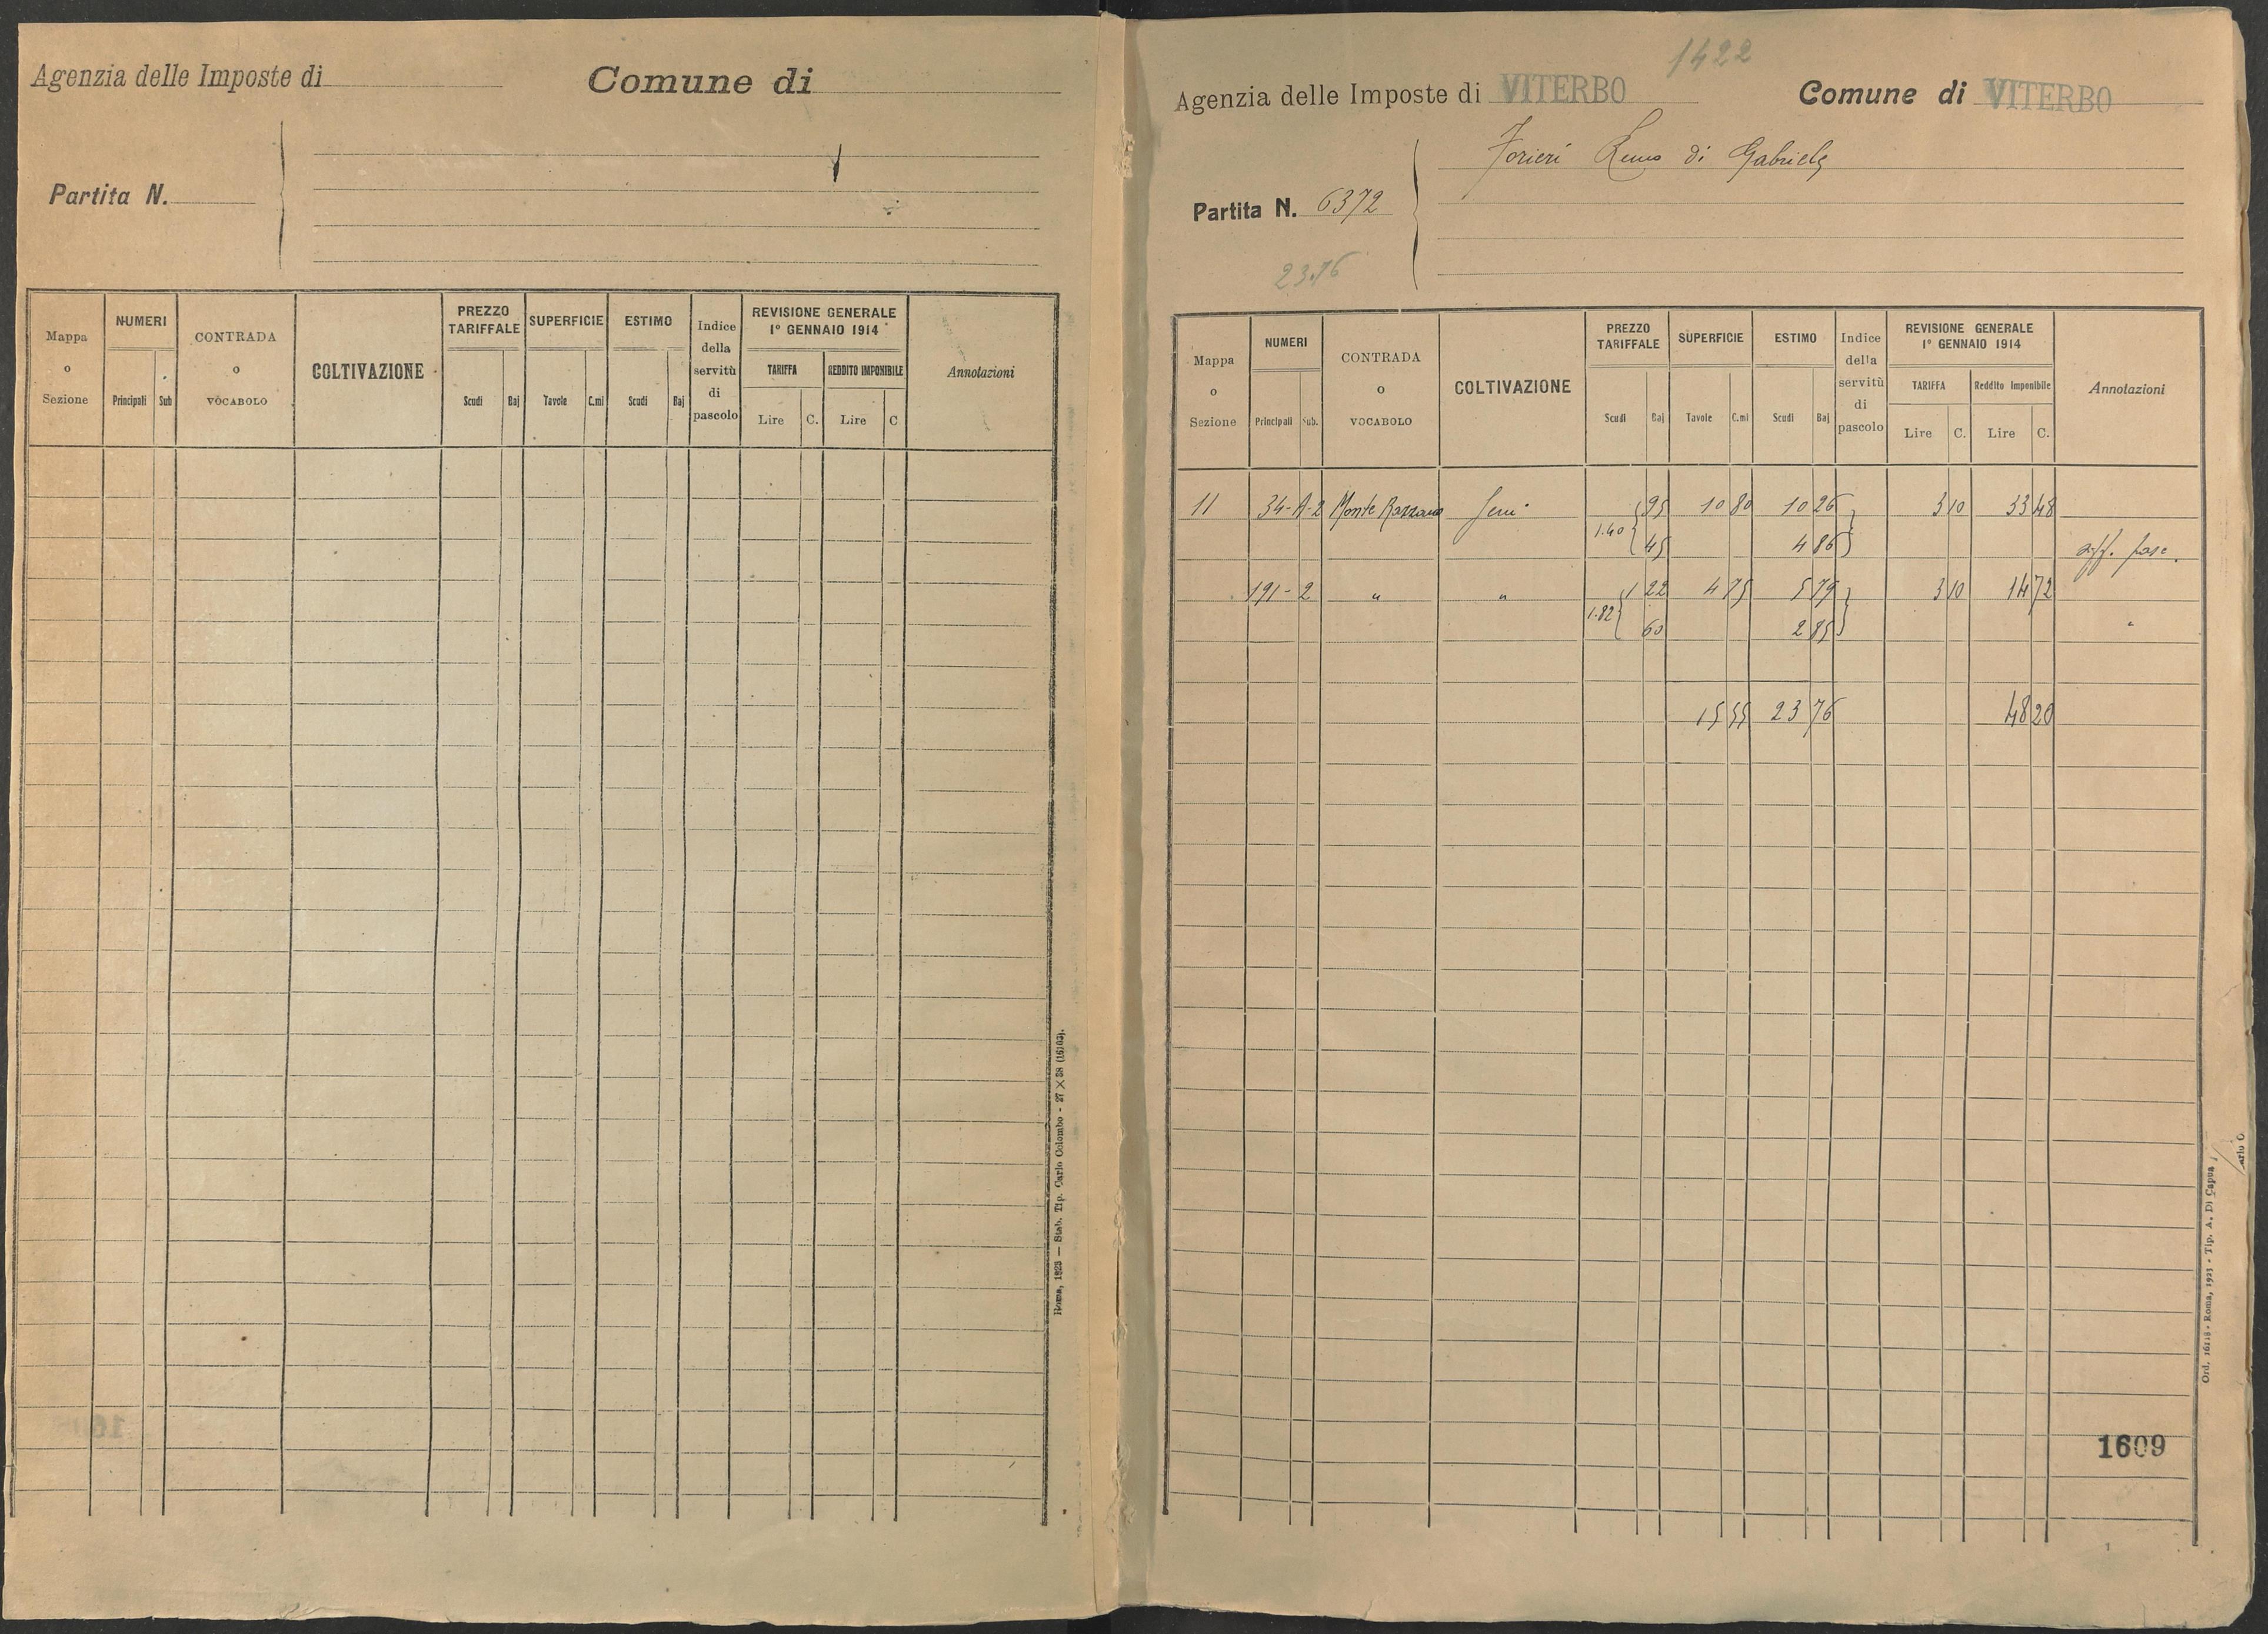 Agenzia delle Imposte di
Comune di
Partita N.
Mappa o Sezione
NUMERI
Principali Sub
CONTRADA o VOCABOLO
COLTIVAZIONE
PREZZO TARIFFALE
Scudi Baj
SUPERFICIE
Tavole C.mi
ESTIMO
Scudi Baj
Indice della servitù di pascolo
REVISIONE GENERALE
1º GENNAIO 1914
TARIFFA REDDITO IMPONIBILE
Lire C. Lire C
Annotazioni
Roma, 1925 — Stab. Tip. Carlo Colombo - 27 X 38 (16103).
1422
Agenzia delle Imposte di VITERBO
Comune di VITERBO
Forieri Remo di Gabriele
Partita N. 6372
23.76
Mappa o Sezione
NUMERI
Principali Sub.
CONTRADA o VOCABOLO
COLTIVAZIONE
PREZZO TARIFFALE
Scudi Baj
SUPERFICIE
Tavole C.mi
ESTIMO
Scudi Baj
Indice della servitù di pascolo
REVISIONE GENERALE
1º GENNAIO 1914
TARIFFA Reddito Imponibile
Lire C. Lire C.
Annotazioni
11 34-A-2 Monte Razzano Semi. 95 10 80 10 26 3 10 33 48
1.40 45 4 86 aff. pasc.
191-2 " " 1 22 4 75 5 79 3 10 14 72
1.82 60 2 85 "
15 55 23 76 48 20
1609
Ord. 16118 - Roma, 1923 - Tip. A. Di Capua